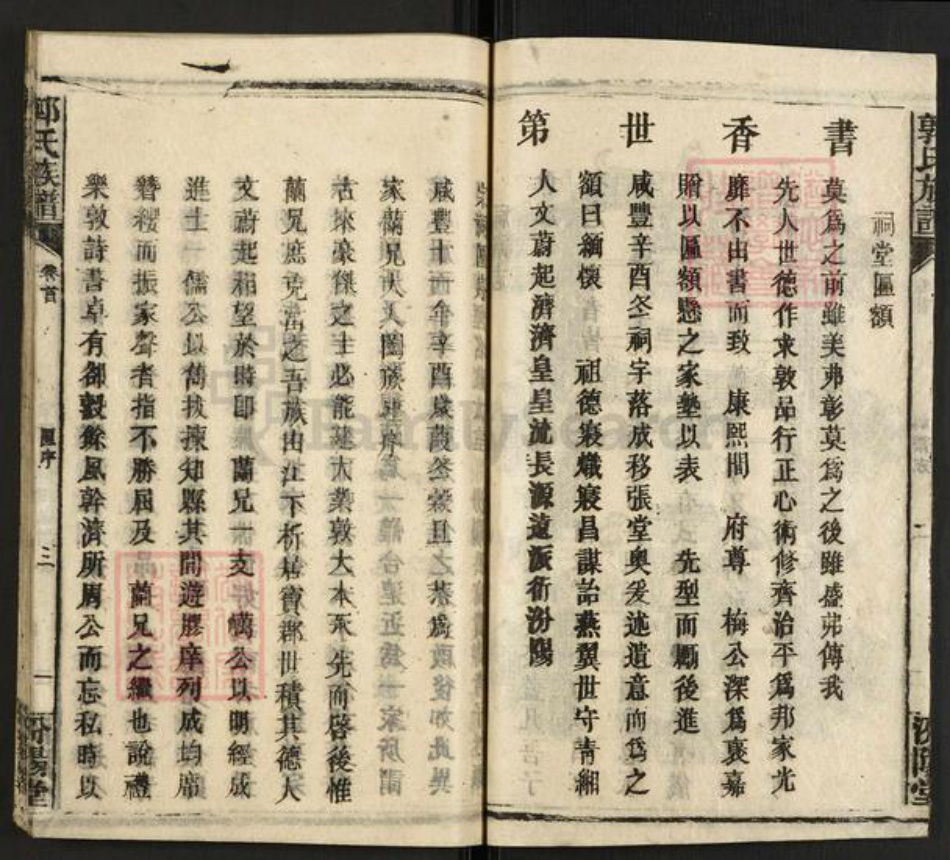 郭氏族譜
汾陽堂
祠堂匾額
書香世第
莫為之前雖美弗彰莫為之後雖盛弗傳我
先人世德作求敦品行正心術修齊治平為邦家光
靡不由書而致 康熙間 府尊 梅公深為褒嘉
贈以匾額懸之家塾以表 先型而勵後進
咸豐辛酉冬祠宇落成移張堂奧爰述遺意而為之
額曰緬懷 祖德寖熾寖昌謀詒燕翼世守青緗
人文蔚起濟濟皇皇流長源遠派衍汾陽
咸豐十一年辛酉歲
家蘭兄大人圍
古來豪傑之士必能建大業敦大本承先而啓後惟
蘭兄庶克當之吾族由江下析居寶郡世積其德人
文蔚起相望於時即 蘭兄一支 公以明經成
進士 儒公以 拔揀知縣其間遊膠庠列成均膺
簪纓而振家聲者指不勝屈及 蘭兄之繼也說禮
樂敦詩書卓有郤縠餘風幹濟所周公而忘私時以
郭氏族譜
卷首
匾序
三
汾陽堂